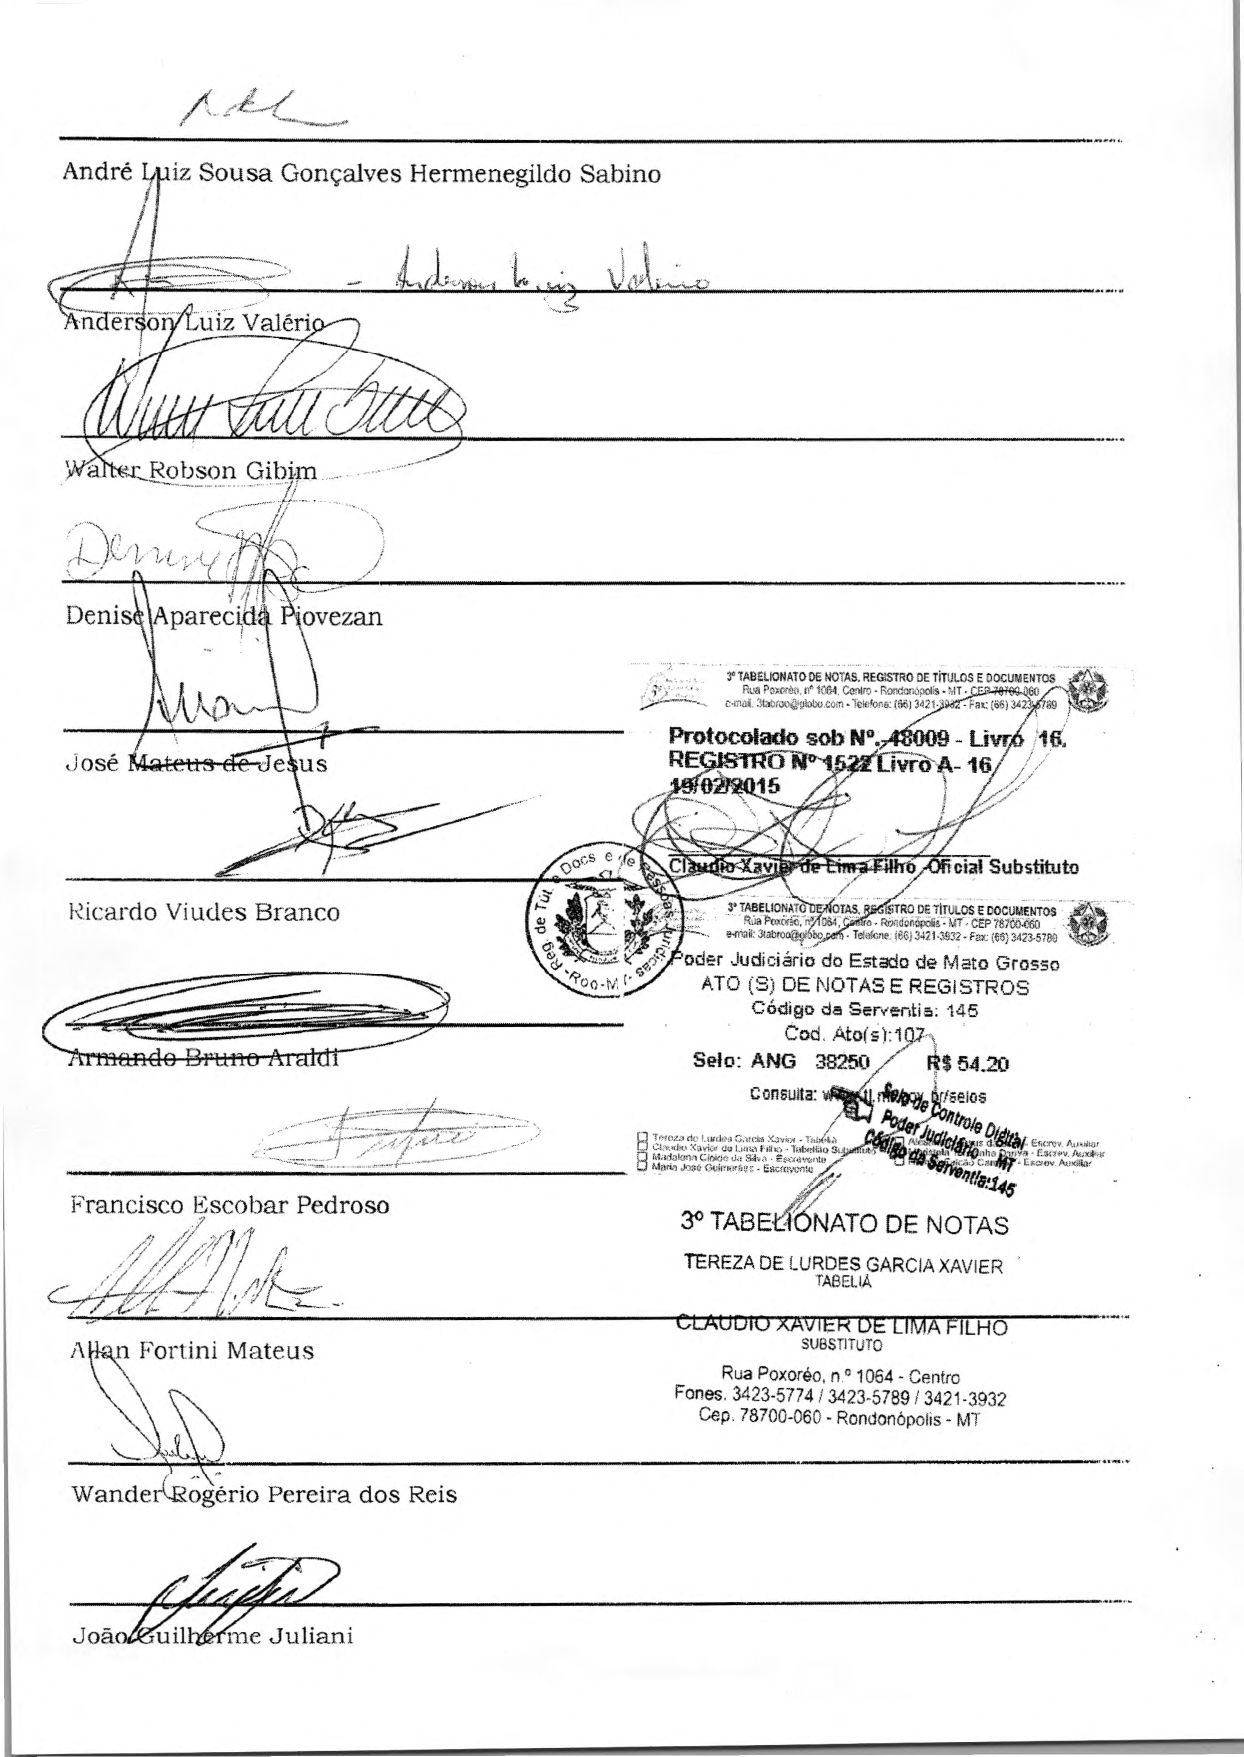 André Luiz Sousa Gonçalves Hermenegildo Sabino
- Anderson Luiz Valério
Anderson Luiz Valério
Walter Robson Gibim
Denise Aparecida Piovezan
José Mateus de Jesus
Ricardo Viudes Branco
Armando Bruno Araldi
Francisco Escobar Pedroso
Allan Fortini Mateus
Wander Rogério Pereira dos Reis
João Guilherme Juliani
3º TABELIONATO DE NOTAS, REGISTRO DE TÍTULOS E DOCUMENTOS
Rua Poxoréo, nº 1064, Centro - Rondonópolis - MT - CEP 78700-060
e-mail: 3tabroo@globo.com - Telefone: (66) 3421-3932 - Fax: (66) 3423-5789
Protocolado sob Nº. 48009 - Livro 16.
REGISTRO Nº 1522 Livro A- 16
19/02/2015
Claudio Xavier de Lima Filho Oficial Substituto
Reg. de Tít. e Docs e de Pessoas Jurídicas - Roo-MT
3º TABELIONATO DE NOTAS, REGISTRO DE TÍTULOS E DOCUMENTOS
Rua Poxoréo, nº 1064, Centro - Rondonópolis - MT - CEP 78700-060
e-mail: 3tabroo@globo.com - Telefone: (66) 3421-3932 - Fax: (66) 3423-5789
Poder Judiciário do Estado de Mato Grosso
ATO (S) DE NOTAS E REGISTROS
Código da Serventia: 145
Cod. Ato(s):107
Selo: ANG 38250 R$ 54.20
Consulta: www.tj.mt.gov.br/selos
Selo de Controle Digital
Poder Judiciário - MT
Código da Serventia:145
Tereza de Lurdes Garcia Xavier - Tabeliã
Claudio Xavier de Lima Filho - Tabelião Substituto
Madalena Cleide da Silva - Escrevente
Maria José Guimarães - Escrevente
- Escrev. Auxiliar
- Escrev. Auxiliar
- Escrev. Auxiliar
3º TABELIONATO DE NOTAS
TEREZA DE LURDES GARCIA XAVIER
TABELIÃ
CLAUDIO XAVIER DE LIMA FILHO
SUBSTITUTO
Rua Poxoréo, n.º 1064 - Centro
Fones. 3423-5774 / 3423-5789 / 3421-3932
Cep. 78700-060 - Rondonópolis - MT